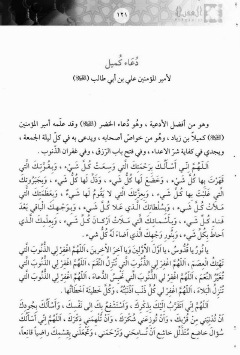 ١٢١
دُعَاءُ كُمَيل
لأمير المؤمنين علي بن أبي طالب (ﷺ)
وهو من أفضل الأدعية ، وهُو دُعاء الخضر (ﷺ) وقد علّمه أمير المؤمنين
(ﷺ) كميلاً بن زياد، وهو من خواصّ أصحابه ، ويدعى به في كلّ ليلة الجمعة ،
ويجدي في كفاية شرّ الاعداء ، وفي فتح باب الرّزق ، وفي غفران الذّنوب .
اَللّـهُمَّ اِنّي اَسْأَلُكَ بِرَحْمَتِكَ الَّتي وَسِعَتْ كُلَّ شَيْء ، وَبِقُوَّتِكَ الَّتي
قَهَرْتَ بِها كُلَّ شَيْء ، وَخَضَعَ لَها كُلُّ شَيء ، وَذَلَّ لَها كُلُّ شَيء ، وَبِجَبَرُوتِكَ
الَّتي غَلَبْتَ بِها كُلَّ شَيء ، وَبِعِزَّتِكَ الَّتي لا يَقُومُ لَها شَيءٌ ، وَبِعَظَمَتِكَ الَّتي
مَلَأَتْ كُلَّ شَيء ، وَبِسُلْطانِكَ الَّذي عَلا كُلَّ شَيء ، وَبِوَجْهِكَ الْباقي بَعْدَ
فَناءِ كُلِّ شَيء ، وَبِأَسْمائِكَ الَّتي مَلَأَتْ اَرْكانَ كُلِّ شَيء ، وَبِعِلْمِكَ الَّذي
اَحاطَ بِكُلِّ شَيء ، وَبِنُورِ وَجْهِكَ الَّذي اَضاءَ لَهُ كُلُّ شيء .
يا نُورُ يا قُدُّوسُ ، يا اَوَّلَ الْأَوَّلِينَ وَيا آخِرَ الْآخِرينَ ، اَللّـهُمَّ اغْفِرْ لِي الذُّنُوبَ الَّتي
تَهْتِكُ الْعِصَمَ ، اَللّـهُمَّ اغْفِـرْ لِي الذُّنُوبَ الَّتي تُنْزِلُ النِّقَمَ ، اَللّهُمَّ اغْفِرْ لِي الذُّنُوبَ الَّتي
تُغَيِّرُ النِّعَمَ ، اَللّـهُمَّ اغْفِرْ لي الذُّنُوبَ الَّتي تَحْبِسُ الدُّعاءَ ، اَللّـهُمَّ اغْفِرْ لِي الذُّنُوبَ الَّتي
تُنْزِلُ الْبَلاءَ ، اَللّهُمَّ اغْفِرْ لي كُلَّ ذَنْب اَذْنَبْتُهُ ، وَكُلَّ خَطيئَة اَخْطَأتُها .
اَللّهُمَّ اِنّي اَتَقَرَّبُ اِلَيْكَ بِذِكْرِكَ ، وَاَسْتَشْفِعُ بِكَ اِلى نَفْسِكَ ، وَأَسْأَلُكَ بِجُودِكَ
اَنْ تُدْنِيَني مِنْ قُرْبِكَ ، وَاَنْ تُوزِعَني شُكْرَكَ ، وَاَنْ تُلْهِمَني ذِكْرَكَ ، اَللّهُمَّ اِنّي اَسْأَلُكَ
سُؤالَ خاضِع مُتَذَلِّل خاشِع اَنْ تُسامِحَني وَتَرْحَمَني ، وَتَجْعَلَني بِقِسْمِكَ راضِياً قانِعاً،